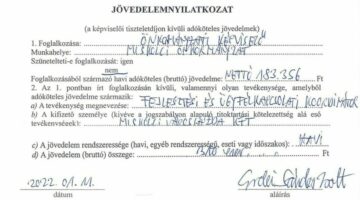 JÖVEDELEMNYILATKOZAT
(a képviselői tiszteletdíjon kívüli adóköteles jövedelmek)
1. Foglalkozása: ÖNKORMÁNYZATI KÉPVISELŐ
Munkahelye: MISKOLCI ÖNKORMÁNYZAT
Szünetelteti-e foglalkozását: igen
nem
Foglalkozásából származó havi adóköteles (bruttó) jövedelme: NETTÓ 183.356 Ft
2. Az 1. pontban írt foglalkozásán kívüli, valamennyi olyan tevékenysége, amelyből
adóköteles jövedelme származik:
a) A tevékenység megnevezése: FEJLESZTÉSI ÉS ÜGYFÉLKAPCSOLATI KOORDINÁTOR
b) A kifizető személye (kivéve a jogszabályon alapuló titoktartási kötelezettség alá eső
tevékenységek): MISKOLCI VÁROSGAZDA KFT
c) A jövedelem rendszeressége (havi, egyéb rendszerességű, eseti vagy időszakos): HAVI
d) A jövedelem (bruttó) összege: Ft
2022.01.11
dátum
aláírás